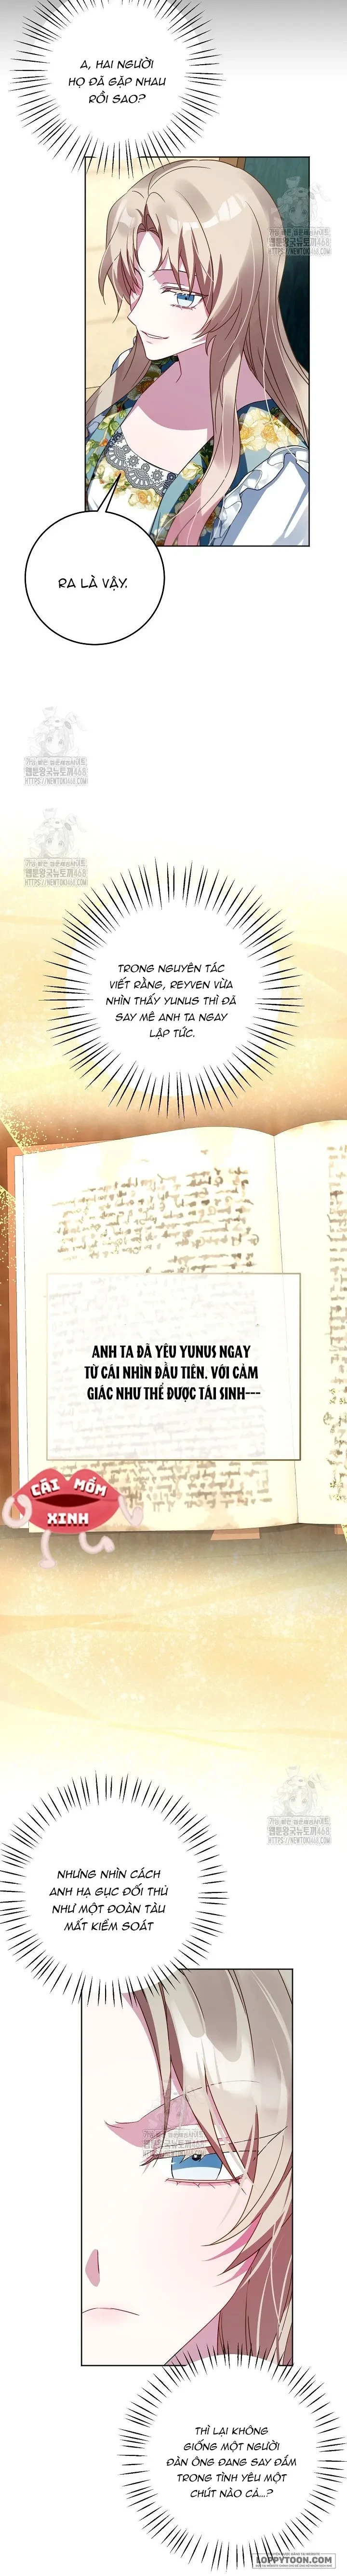 A, HAI NGƯỜI
HỌ ĐÃ GẶP NHAU
RỒI SAO?
HTTPS://NEWTOKI468
RA LÀ VẬY.
HTTPS://NEWTOKI468
HTTPS://NEWTOKI468
TRONG NGUYÊN TÁC
VIẾT RẰNG, REYVEN VỪA
NHÌN THẤY YUNUS THÌ ĐÃ
SAY MÊ ANH TA NGAY
LẬP TỨC.
ANH TA ĐÃ YÊU YUNUS NGAY
TỪ CÁI NHÌN ĐẦU TIÊN, VỚI CẢM
GIÁC NHƯ THỂ ĐƯỢC TÁI SINH---
CÁI MỒM
XINH
HTTPS://NEWTOKI468
NHƯNG NHÌN CÁCH
ANH HẠ GỤC ĐỐI THỦ
NHƯ MỘT ĐOÀN TÀU
MẤT KIỂM SOÁT
HTTPS://NEWTOKI468
THÌ LẠI KHÔNG
GIỐNG MỘT NGƯỜI
ĐÀN ÔNG ĐANG SAY ĐẮM
TRONG TÌNH YÊU MỘT
CHÚT NÀO CẢ...?
LOPPYTOON.COM